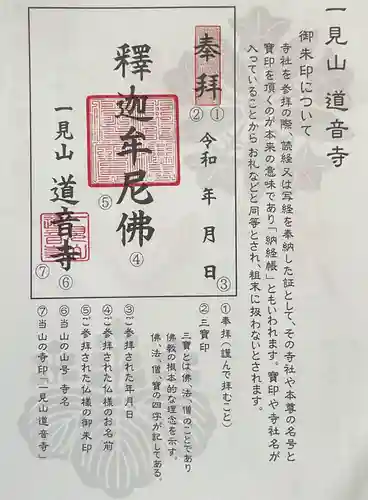 一見山 道音寺
御朱印について
寺社を参拝の際、読経又は写経を奉納した証として、その寺社や本尊の名号と
寶印を頂くのが本来の意味であり「納経帳」ともいわれます。寶印や寺社名が
入っていることから お札などと同等とされ、粗末に扱わないとされます。
奉拝
②①
令和 年 月 日
③
釋迦牟尼佛
⑤
④
一見山 道音寺
⑦ ⑥
①奉拝(謹んで拝むこと)
②三寶印
三寶とは佛、法、僧のことであり
佛教の根本的な理念を示す。
佛、法、僧、寶の四字が記してある。
③ご参拝された年月日
④ご参拝された仏様のお名前
⑤ご参拝された仏様の御朱印
⑥当山の山号 寺名
⑦当山の寺印「一見山道音寺」